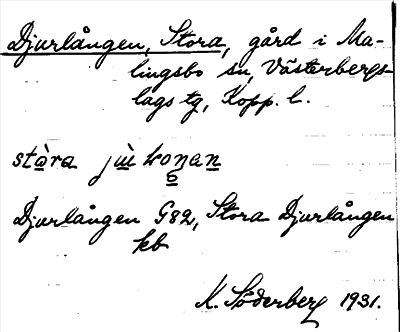 Djurlången, Stora, gård i Ma-
lingsbo sn, Västerbergs-
lags tg, Kopp. l.
stòra jù̀ loŋan
Djurlången G82, Stora Djurlången
kb
K. Söderberg 1931.